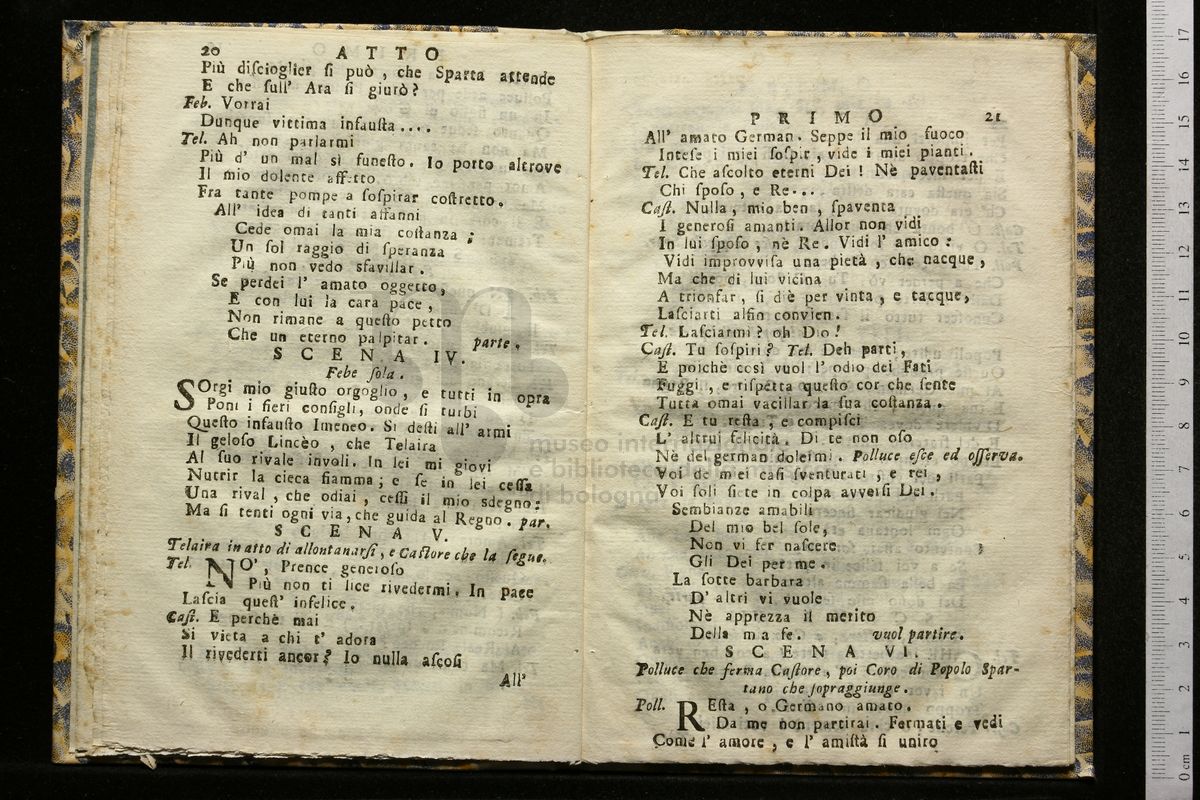 20 ATTO
Più diſcioglier ſi può , che Sparta attende
E che ſull' Ara ſi giurò?
Feb. Vorrai
Dunque vittima infauſta....
Tel. Ah non parlarmi
Più d' un mal sì funeſto. Io porto altrove
Il mio dolente affetto
Fra tante pompe a ſoſpirar coſtretto.
All' idea di tanti affanni
Cede omai la mia coſtanza ;
Un ſol raggio di ſperanza
Più non vedo sfavillar.
Se perdei l' amato oggetto,
E con lui la cara pace,
Non rimane a queſto petto
Che un eterno palpitar. parte.
SCENA IV.
Febe ſola.
SOrgi mio giuſto orgoglio, e tutti in opra
Poni i fieri conſigli, onde ſi turbi
Queſto infauſto Imeneo. Si deſti all' armi
Il geloſo Lincèo , che Telaira
Al ſuo rivale involi. In lei mi giovi
Nutrir la cieca fiamma; e ſe in lei ceſſa
Una rival , che odiai , ceſſi il mio sdegno:
Ma ſi tenti ogni via, che guida al Regno. par.
SCENA V.
Telaira in atto di allontanarſi, e Caſtore che la ſegue.
Tel. NO', Prence generoſo
Più non ti lice rivedermi. In pace
Laſcia queſt' infelice.
Caſt. E perchè mai
Si vieta a chi t' adora
Il rivederti ancor? Io nulla aſcoſi
All'
PRIMO 21
All' amato German. Seppe il mio fuoco
Inteſe i miei ſoſpir, vide i miei pianti.
Tel. Che aſcolto eterni Dei ! Nè paventaſti
Chi ſpoſo , e Re...
Caſt. Nulla, mio ben , ſpaventa
I generoſi amanti. Allor non vidi
In lui ſpoſo , nè Re. Vidi l' amico:
Vidi improvviſa una pietà , che nacque,
Ma che di lui vicina
A trionfar, ſi diè per vinta , e tacque,
Laſciarti alfin convien.
Tel. Laſciarmi? oh Dio!
Caſt. Tu ſoſpiri? Tel. Deh parti,
E poichè così vuol l' odio dei Fati
Fuggi , e riſpetta queſto cor che ſente
Tutta omai vacillar la ſua coſtanza.
Caſt. E tu reſta , e compiſci
L' altrui felicità. Di te non oſo
Nè del german dolermi. Polluce eſce ed oſſerva.
Voi de miei caſi ſventurati , e rei ,
Voi ſoli ſiete in colpa avverſi Dei.
Sembianze amabili
Del mio bel ſole,
Non vi fer naſcere
Gli Dei per me.
La ſorte barbara
D' altri vi vuole
Nè apprezza il merito
Della mia fe. vuol partire.
SCENA VI.
Polluce che ferma Caſtore, poi Coro di Popolo Spar-
tano che ſopraggiunge.
Poll. REſta , o Germano amato.
Da me non partirai. Fermati e vedi
Come l' amore , e l' amiſtà ſi uniro